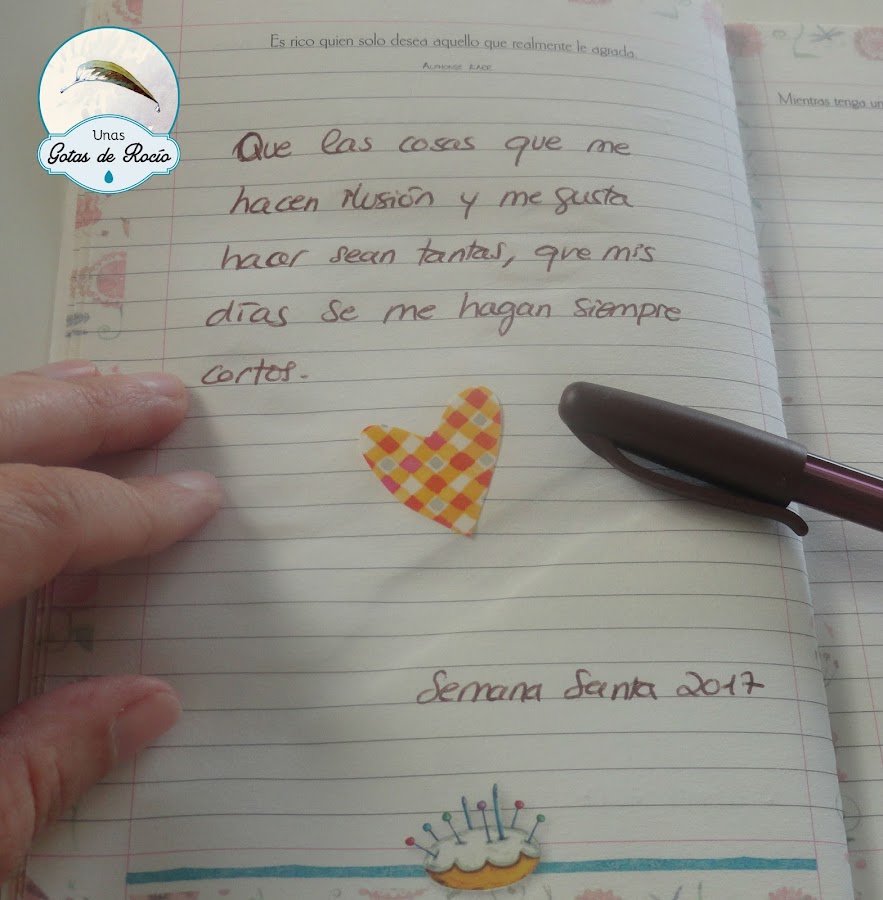 Unas
Gotas de Rocío
Es rico quien solo desea aquello que realmente le agrada.
ALPHONSE KARR
Mientras tengo un
Que las cosas que me
hacen ilusión y me gusta
hacer sean tantas, que mis
días se me hagan siempre
cortos.
Semana Santa 2017